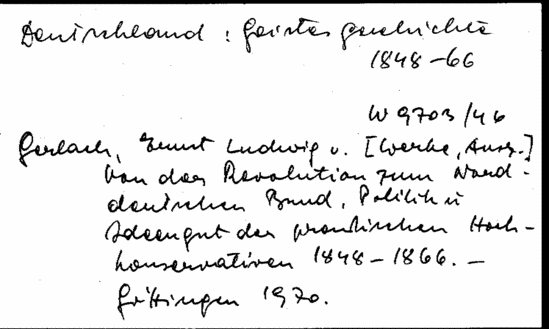 Deutschland : Geistesgeschichte
1848-66
W 9703/46
Gerlach, Ernst Ludwig v. [Werke, Ausz.]
Von der Revolution zum Nord-
deutschen Bund. Politik u
Ideengut der preußischen Hoch-
konservativen 1848-1866. -
Göttingen 1970.